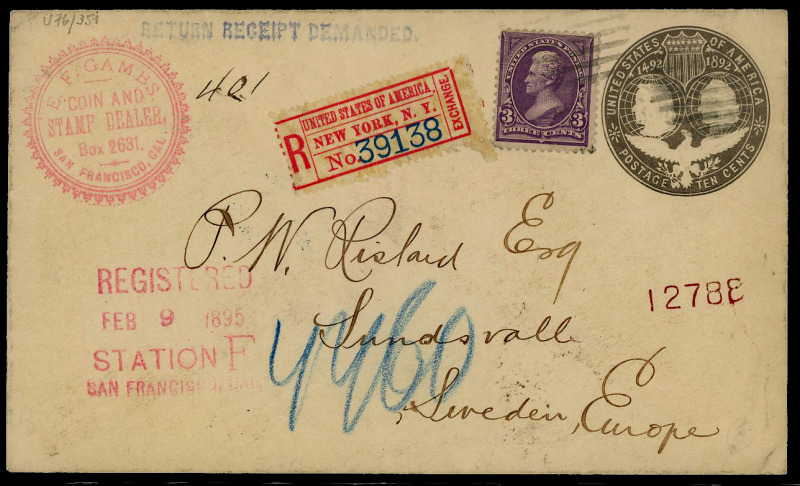 U76/351
RETURN RECEIPT DEMANDED.
E. F. GAMBS
COIN AND
STAMP DEALER,
Box 2631.
SAN FRANCISCO, CAL.
401
R
UNITED STATES OF AMERICA.
NEW YORK, N. Y.
EXCHANGE.
No. 39138
UNITED STATES POSTAGE
3 3
THREE CENTS
UNITED STATES OF AMERICA
1492 1892
POSTAGE TEN CENTS
P. W. Rislard Esq
Sundsvalle
Sweden, Europe
REGISTERED
FEB 9 1895
STATION F
SAN FRANCISCO, CAL.
4460